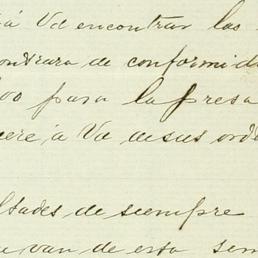 á Vd encontrar las
ondrara de conformid
para la presa
ere á Vd de sus orde
ltades de siempre
van de esta sem